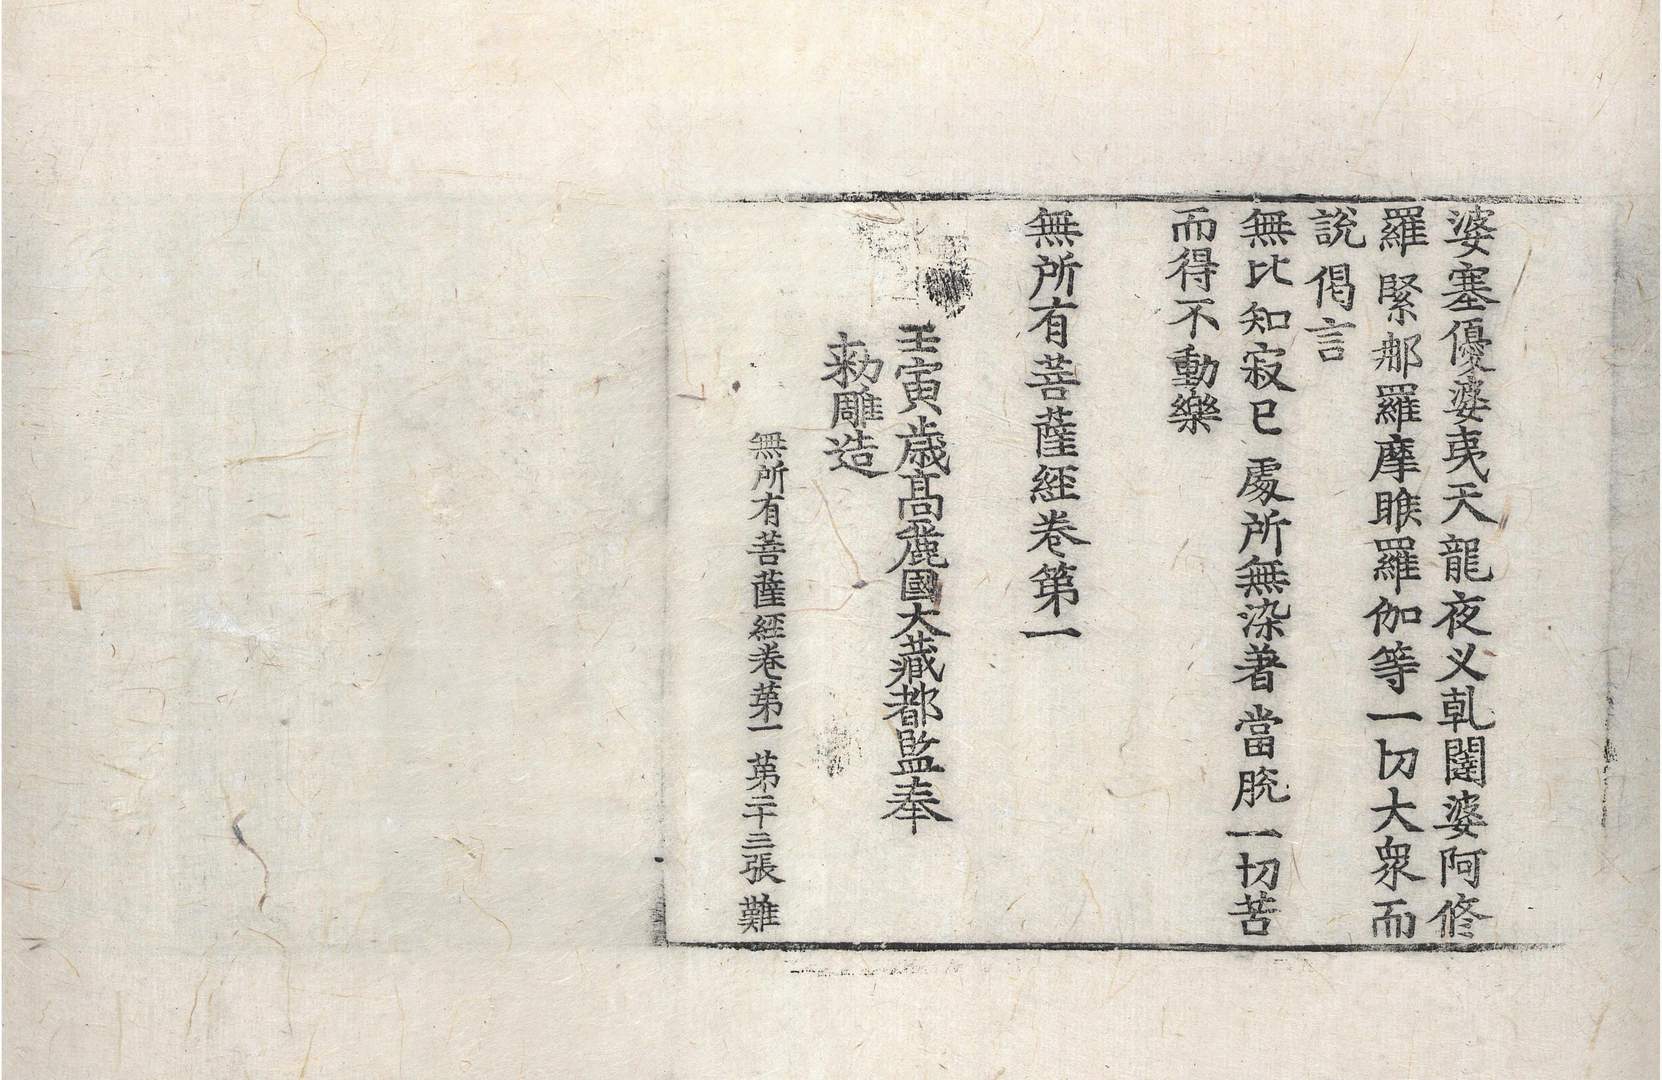 婆塞優婆夷天龍夜义乹闥婆阿修
羅緊那羅羅摩睺羅伽等一切大衆而
說偈言
無比知寂已處所無染著當脫一切苦
而得不動樂
無所有菩薩經卷第一
壬寅歲高麗國大藏都監奉
勑雕造
無所有菩薩經卷第一 第二十三張 難